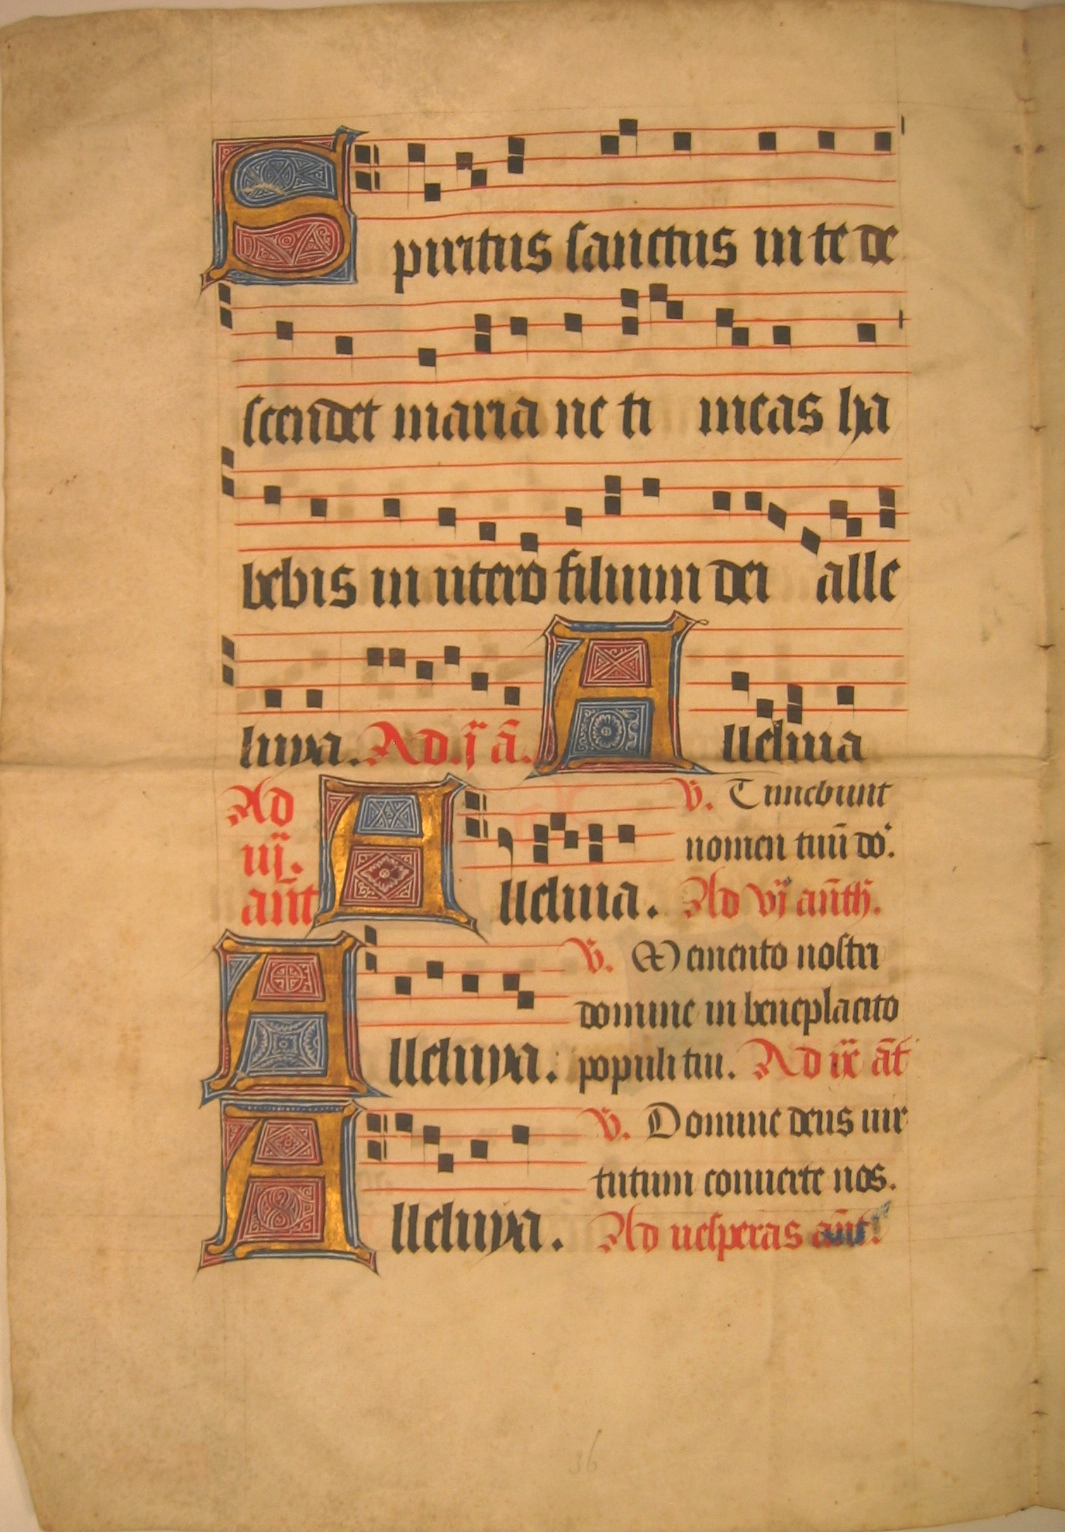 Spiritus sanctus in te de
scendet maria ne ti meas ha
bebis in utero filium dei alle
luya. Ad .j. ā. Alleluia
Ad iij. ant Alleluia. V. Timebunt
nomen tuū do.
Ad vj anth.
Alleluya. V. Memento nostri
domine in beneplacito
populi tui. Ad ix āt
Alleluya. V. Domine deus uir
tutum conuerte nos.
Ad uesperas ant.
36